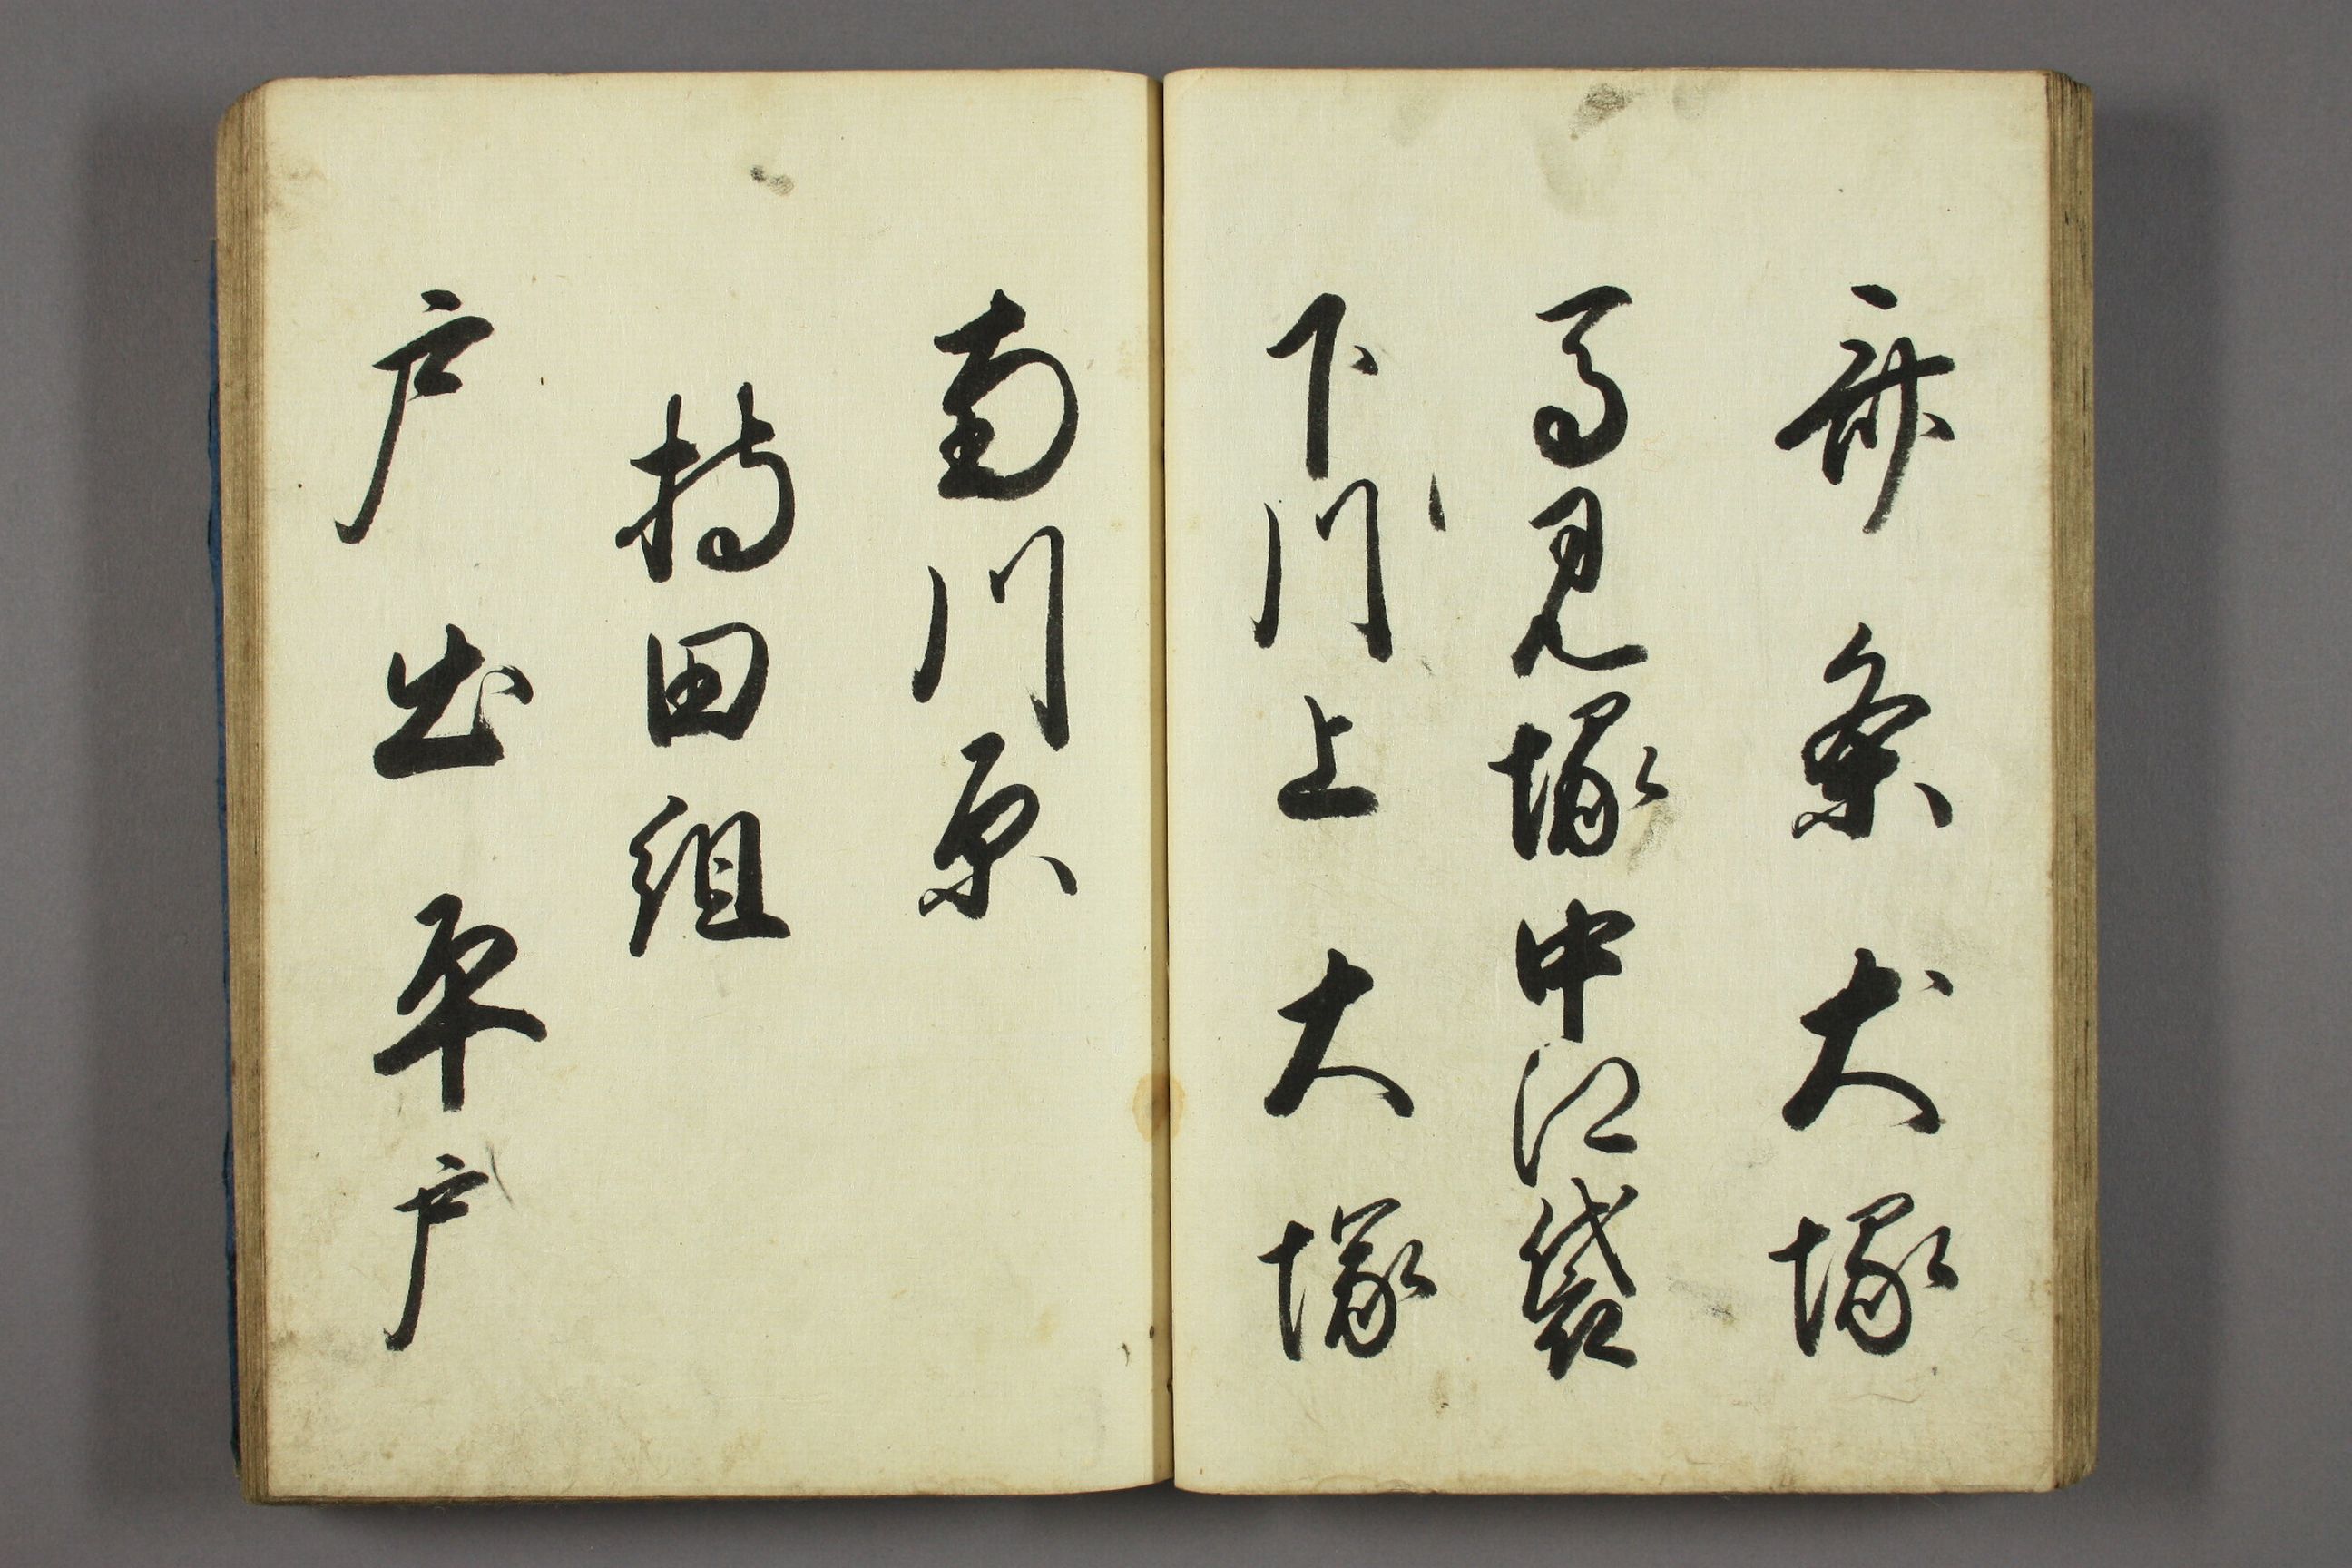 斎条犬塚
馬見塚中江袋
下川上大塚
南川原
持田組
戸出平戸